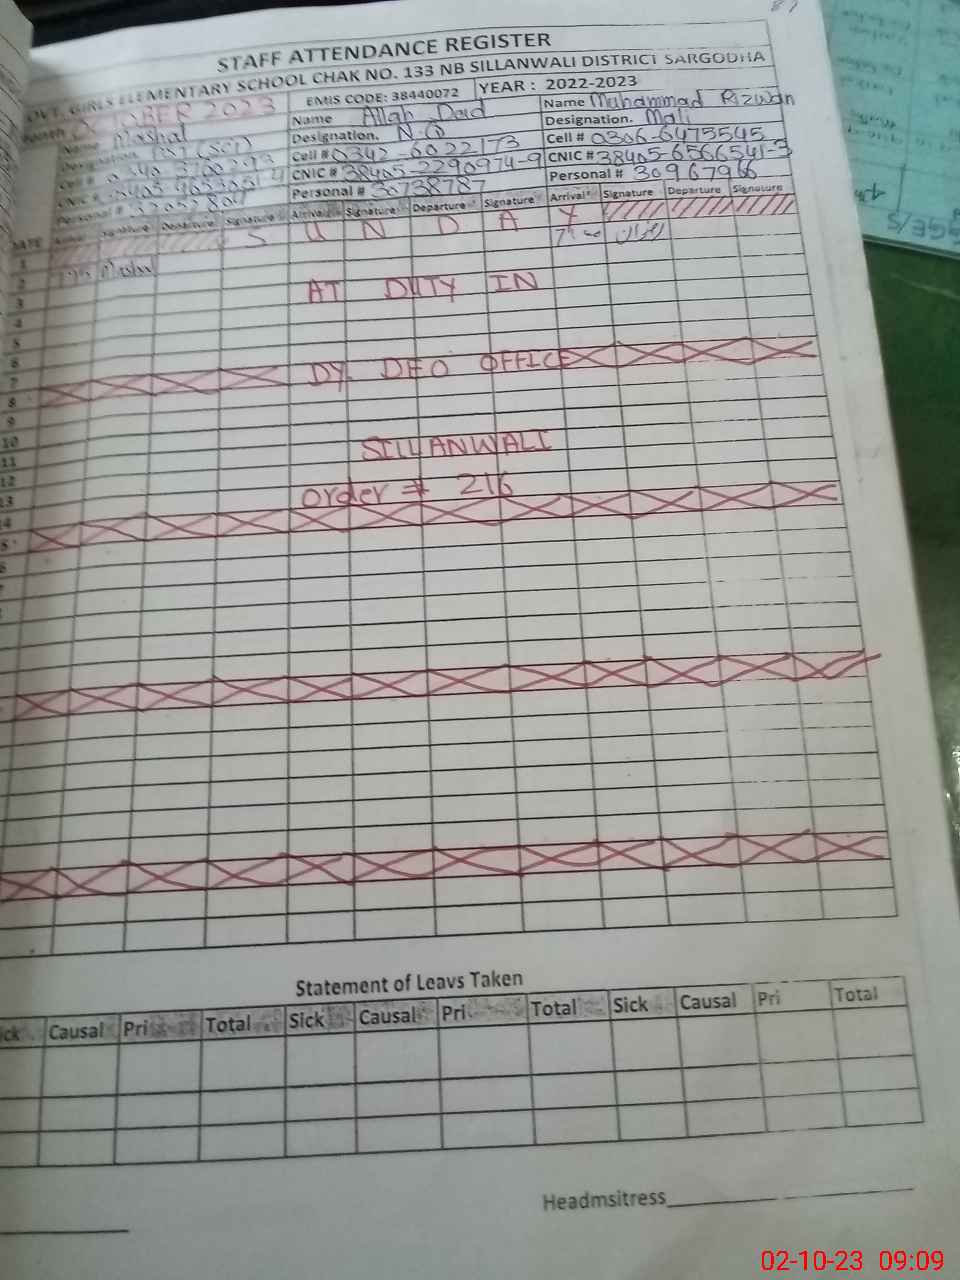 STAFF ATTENDANCE REGISTER
OVT. GIRLS ELEMENTARY SCHOOL CHAK NO. 133 NB SILLANWALI DISTRICT SARGODHA
OCTOBER 2023 EMIS CODE: 38440072 YEAR : 2022-2023
Name Mashal Name Allah Dad Name Muhammad Rizwan
Designation. N.Q Designation. Mali
Cell # Cell # 0342-6022173 Cell # 0306-6475545
CNIC # CNIC # 38405-2290974-9 CNIC # 38405-6566541-3
Personal # Personal # 30738787 Personal # 30967966
DATE Arrival Signature Departure Signature Arrival Signature Departure Signature Arrival Signature Departure Signature
1 S U N D A Y
2 Mashal
3 AT DUTY IN
4
5
6
7 DY. DEO OFFICE
8
9
10
11 SILLANWALI
12
13 order # 216
Statement of Leavs Taken
ick Causal Pri Total Sick Causal Pri Total Sick Causal Pri Total
Headmsitress
02-10-23 09:09